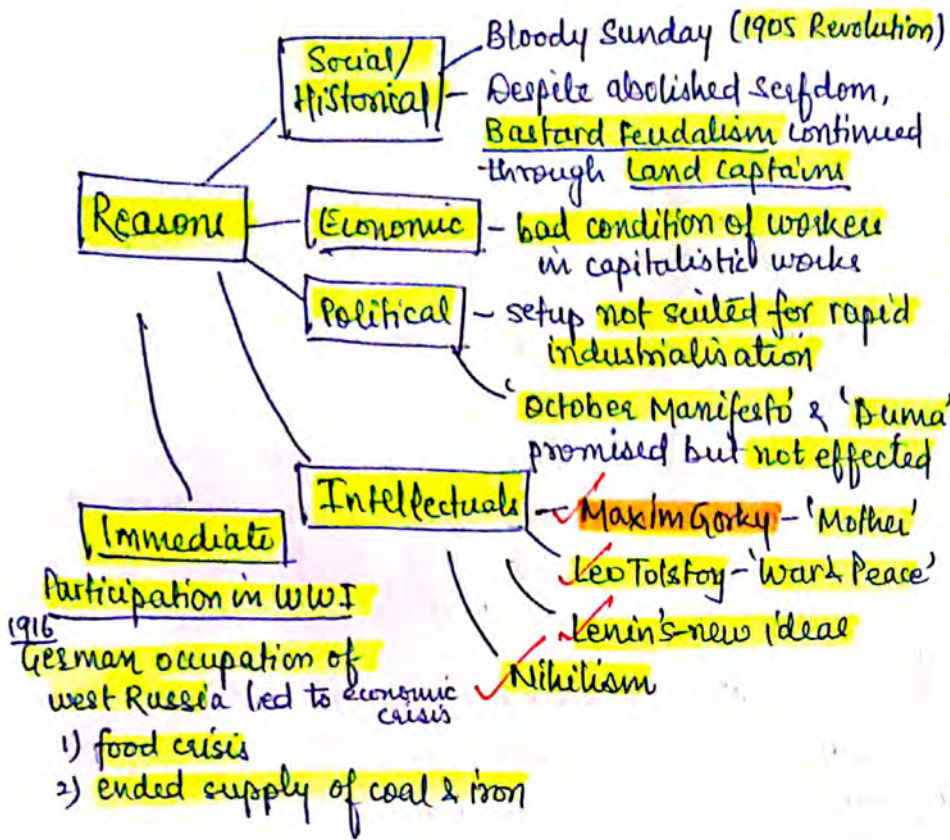 Reasons
Social/
Historical
Bloody Sunday (1905 Revolution)
- Despite abolished serfdom,
Bastard feudalism continued
through land captains
Economic
- bad condition of workers
in capitalistic works
Political
- setup not suited for rapid
industrialisation
'October Manifesto' & 'Duma'
promised but not effected
Intellectuals
- Maxim Gorky - 'Mother'
Leo Tolstoy - 'War & Peace'
Lenin's - new ideas
Nihilism
Immediate
Participation in WWI
1916
German occupation of
west Russia led to economic
crisis
1) food crisis
2) ended supply of coal & iron